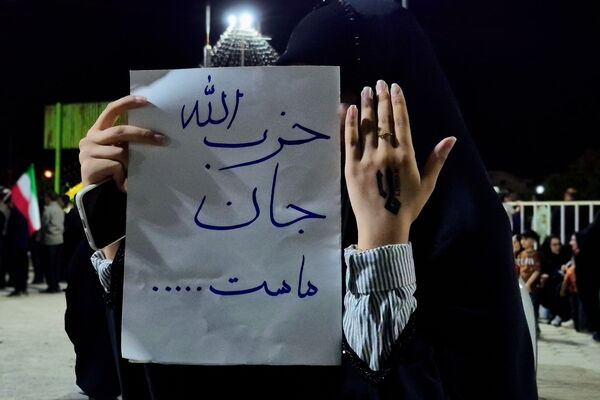 حزب الله
جان
ماست .....